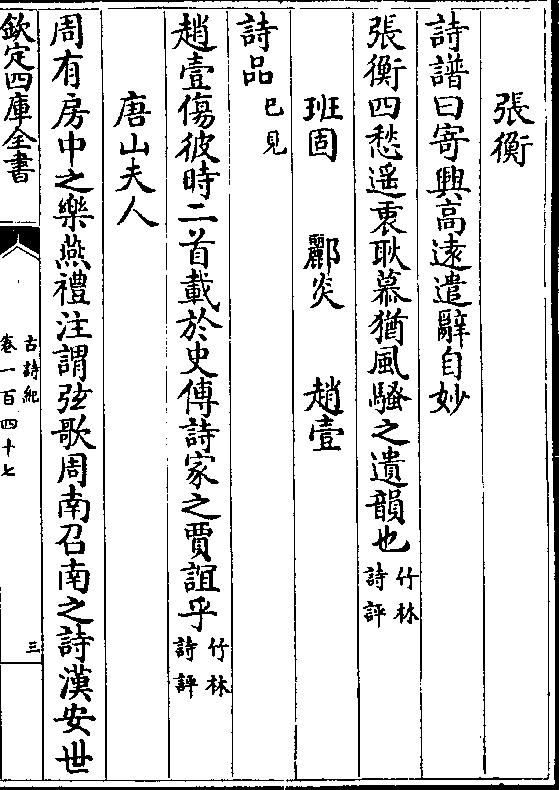 張衡
詩譜曰寄興高遠遣辭自妙
張衡四愁遥裒耿慕猶風騷之遺韻也竹林詩評
班固 酈炎 趙壹
詩品已見
趙壹傷彼時二首載於史傳詩家之賈誼乎竹林詩評
唐山夫人
周有房中之樂燕禮注謂弦歌周南召南之詩漢安世
欽定四庫全書
古詩紀
卷一百四十七
三